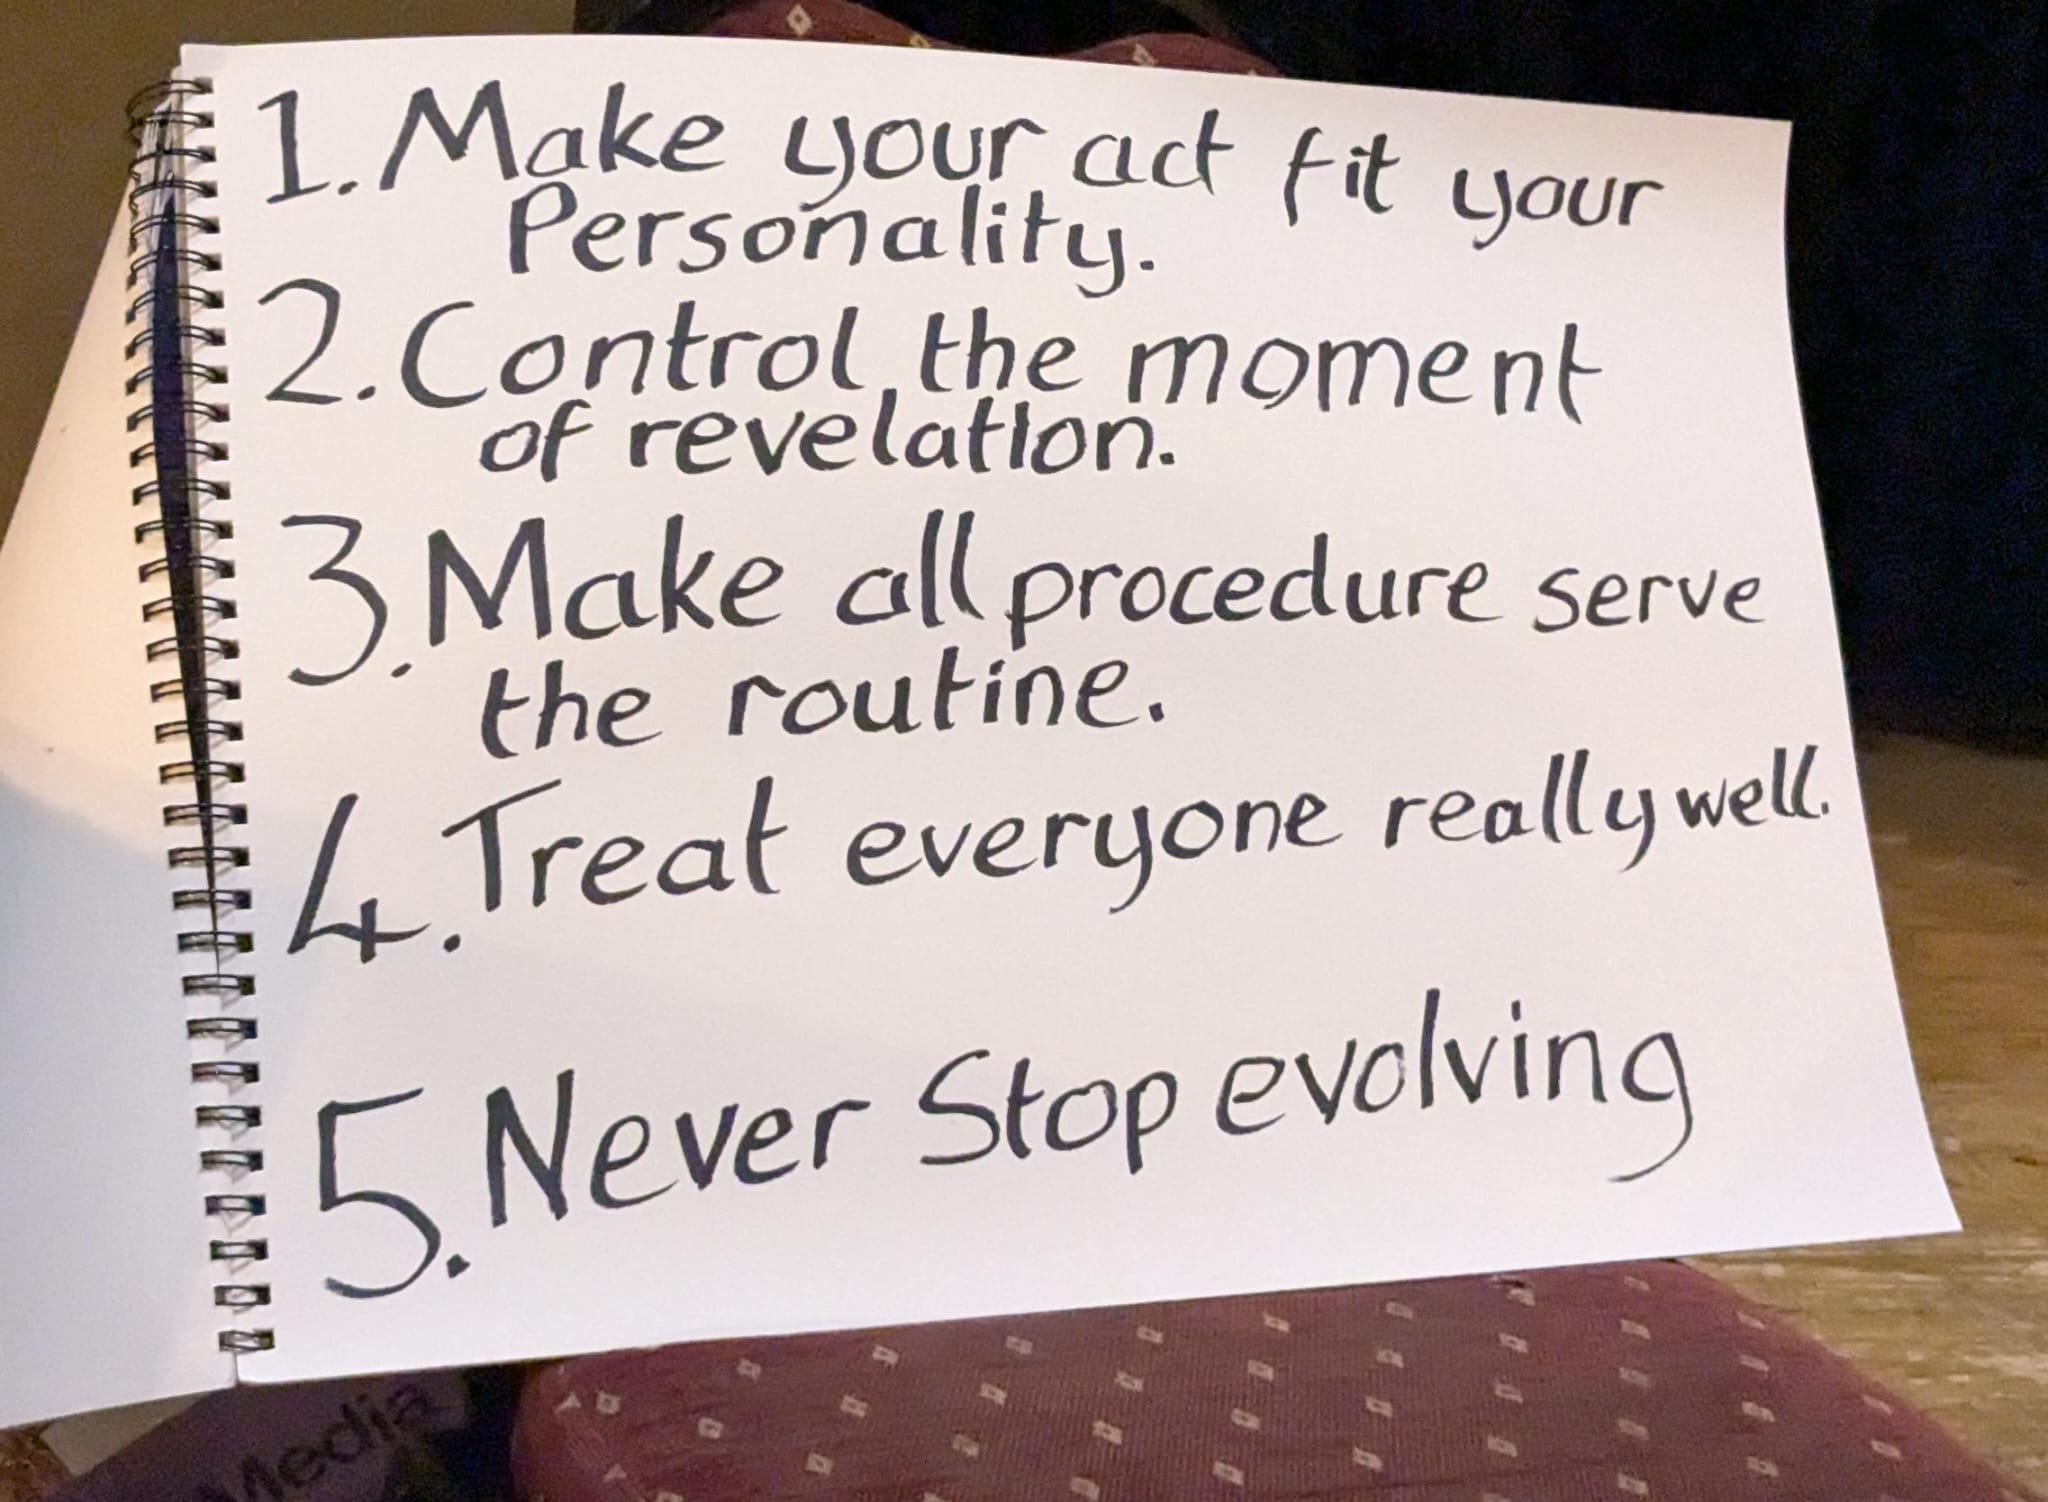 1. Make your act fit your
Personality.
2. Control the moment
of revelation.
3. Make all procedure serve
the routine.
4. Treat everyone really well.
5. Never Stop evolving
Media